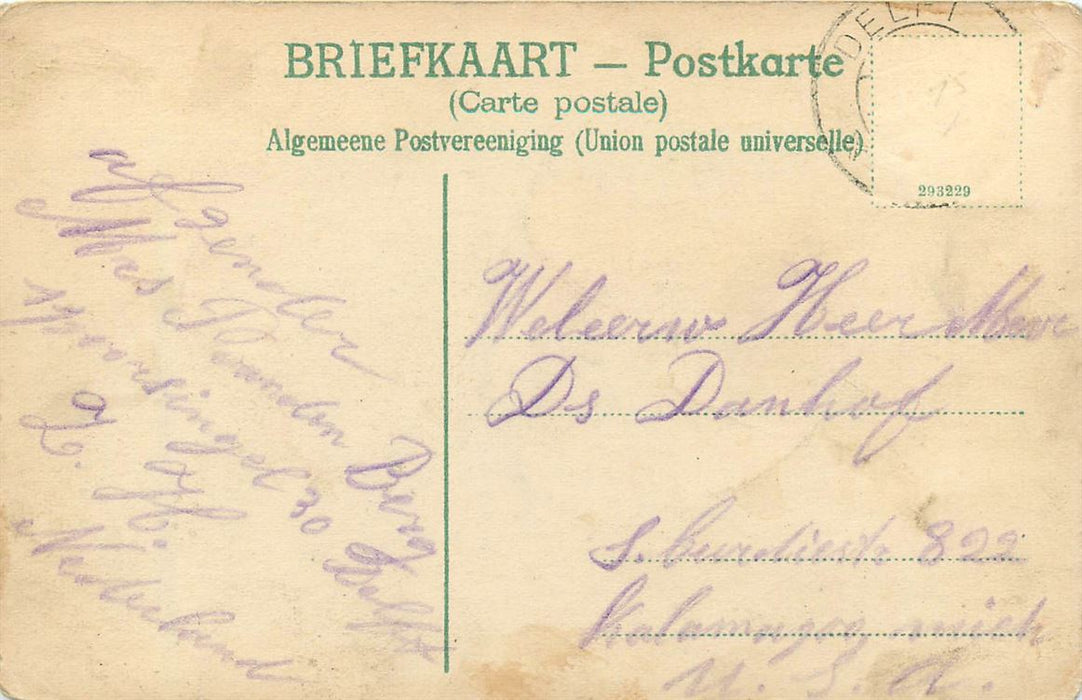 BRIEFKAART — Postkarte
(Carte postale)
Algemeene Postvereeniging (Union postale universelle)
DELFT
293229
afzender
Berg
spoorsingel 30 Delft
Z. H.
Nederland
Weleerw Heer
Ds Danhof
S. 822
Kalamazoo mich
U. S. A.